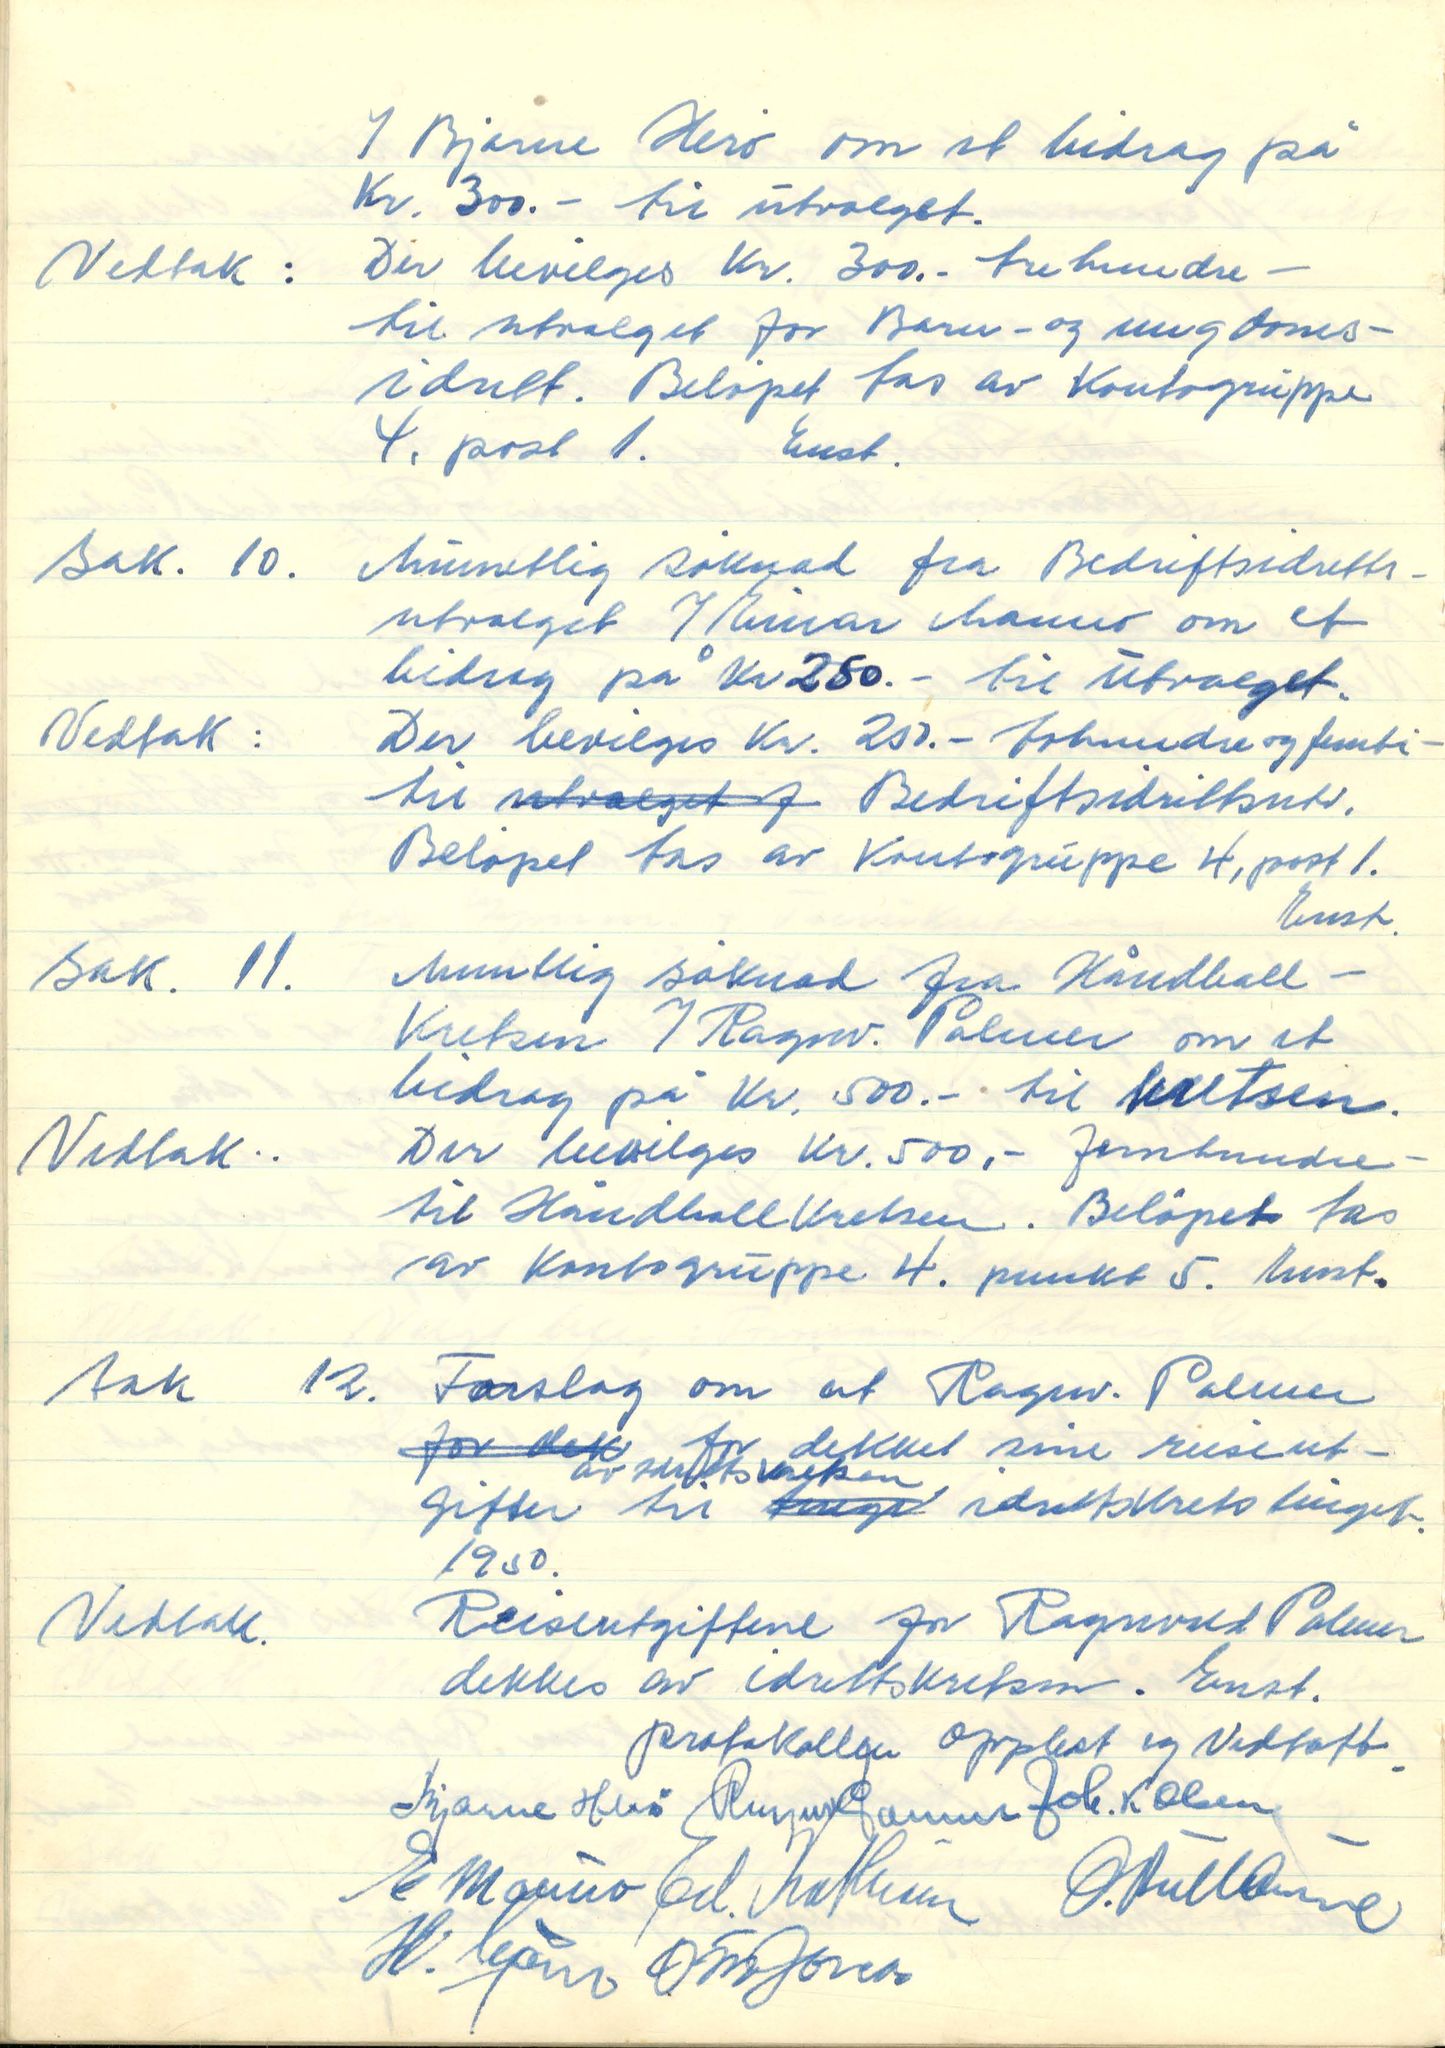 1/ Bjarne Herö om et bidrag på
Kr. 300.- til utvalget.
Vedtak: Der bevilges Kr. 300.- trehundre -
til utvalget for Barn- og ungdoms-
idrett. Belöpet tas av Kontogruppe
4, post 1. Enst.
Sak. 10. Muntlig söknad fra Bedriftsidretts-
utvalget / Einar Mauno om et
bidrag på Kr 250.- til utvalget.
Vedtak: Der bevilges Kr. 250.- tohundreogfemti-
til utvalget f Bedriftsidrettsutv.
Belöpet tas av Kontogruppe 4, post 1.
Enst.
Sak. 11. Muntlig söknad fra Håndball-
Kretsen / Ragnv. Palmer om et
bidrag på Kr. 500.- til kretsen.
Vedtak.. Der bevilges Kr. 500,- femhundre-
til HåndballKretsen. Belöpet tas
av Kontogruppe 4. punkt 5. Enst.
Sak 12. Forslag om at Ragnv. Palmer
for dek får dekket sine reiseut-
av idrettskretsen
gifter til tinge idrettskretstinget
1950.
Vedtak. Reiseutgiftene for Ragnvald Palmer
dekkes av idrettskretsen. Enst.
protokollen opplest og Vedtatt.
Bjarne Herö Joh. K Olsen
E Mauno